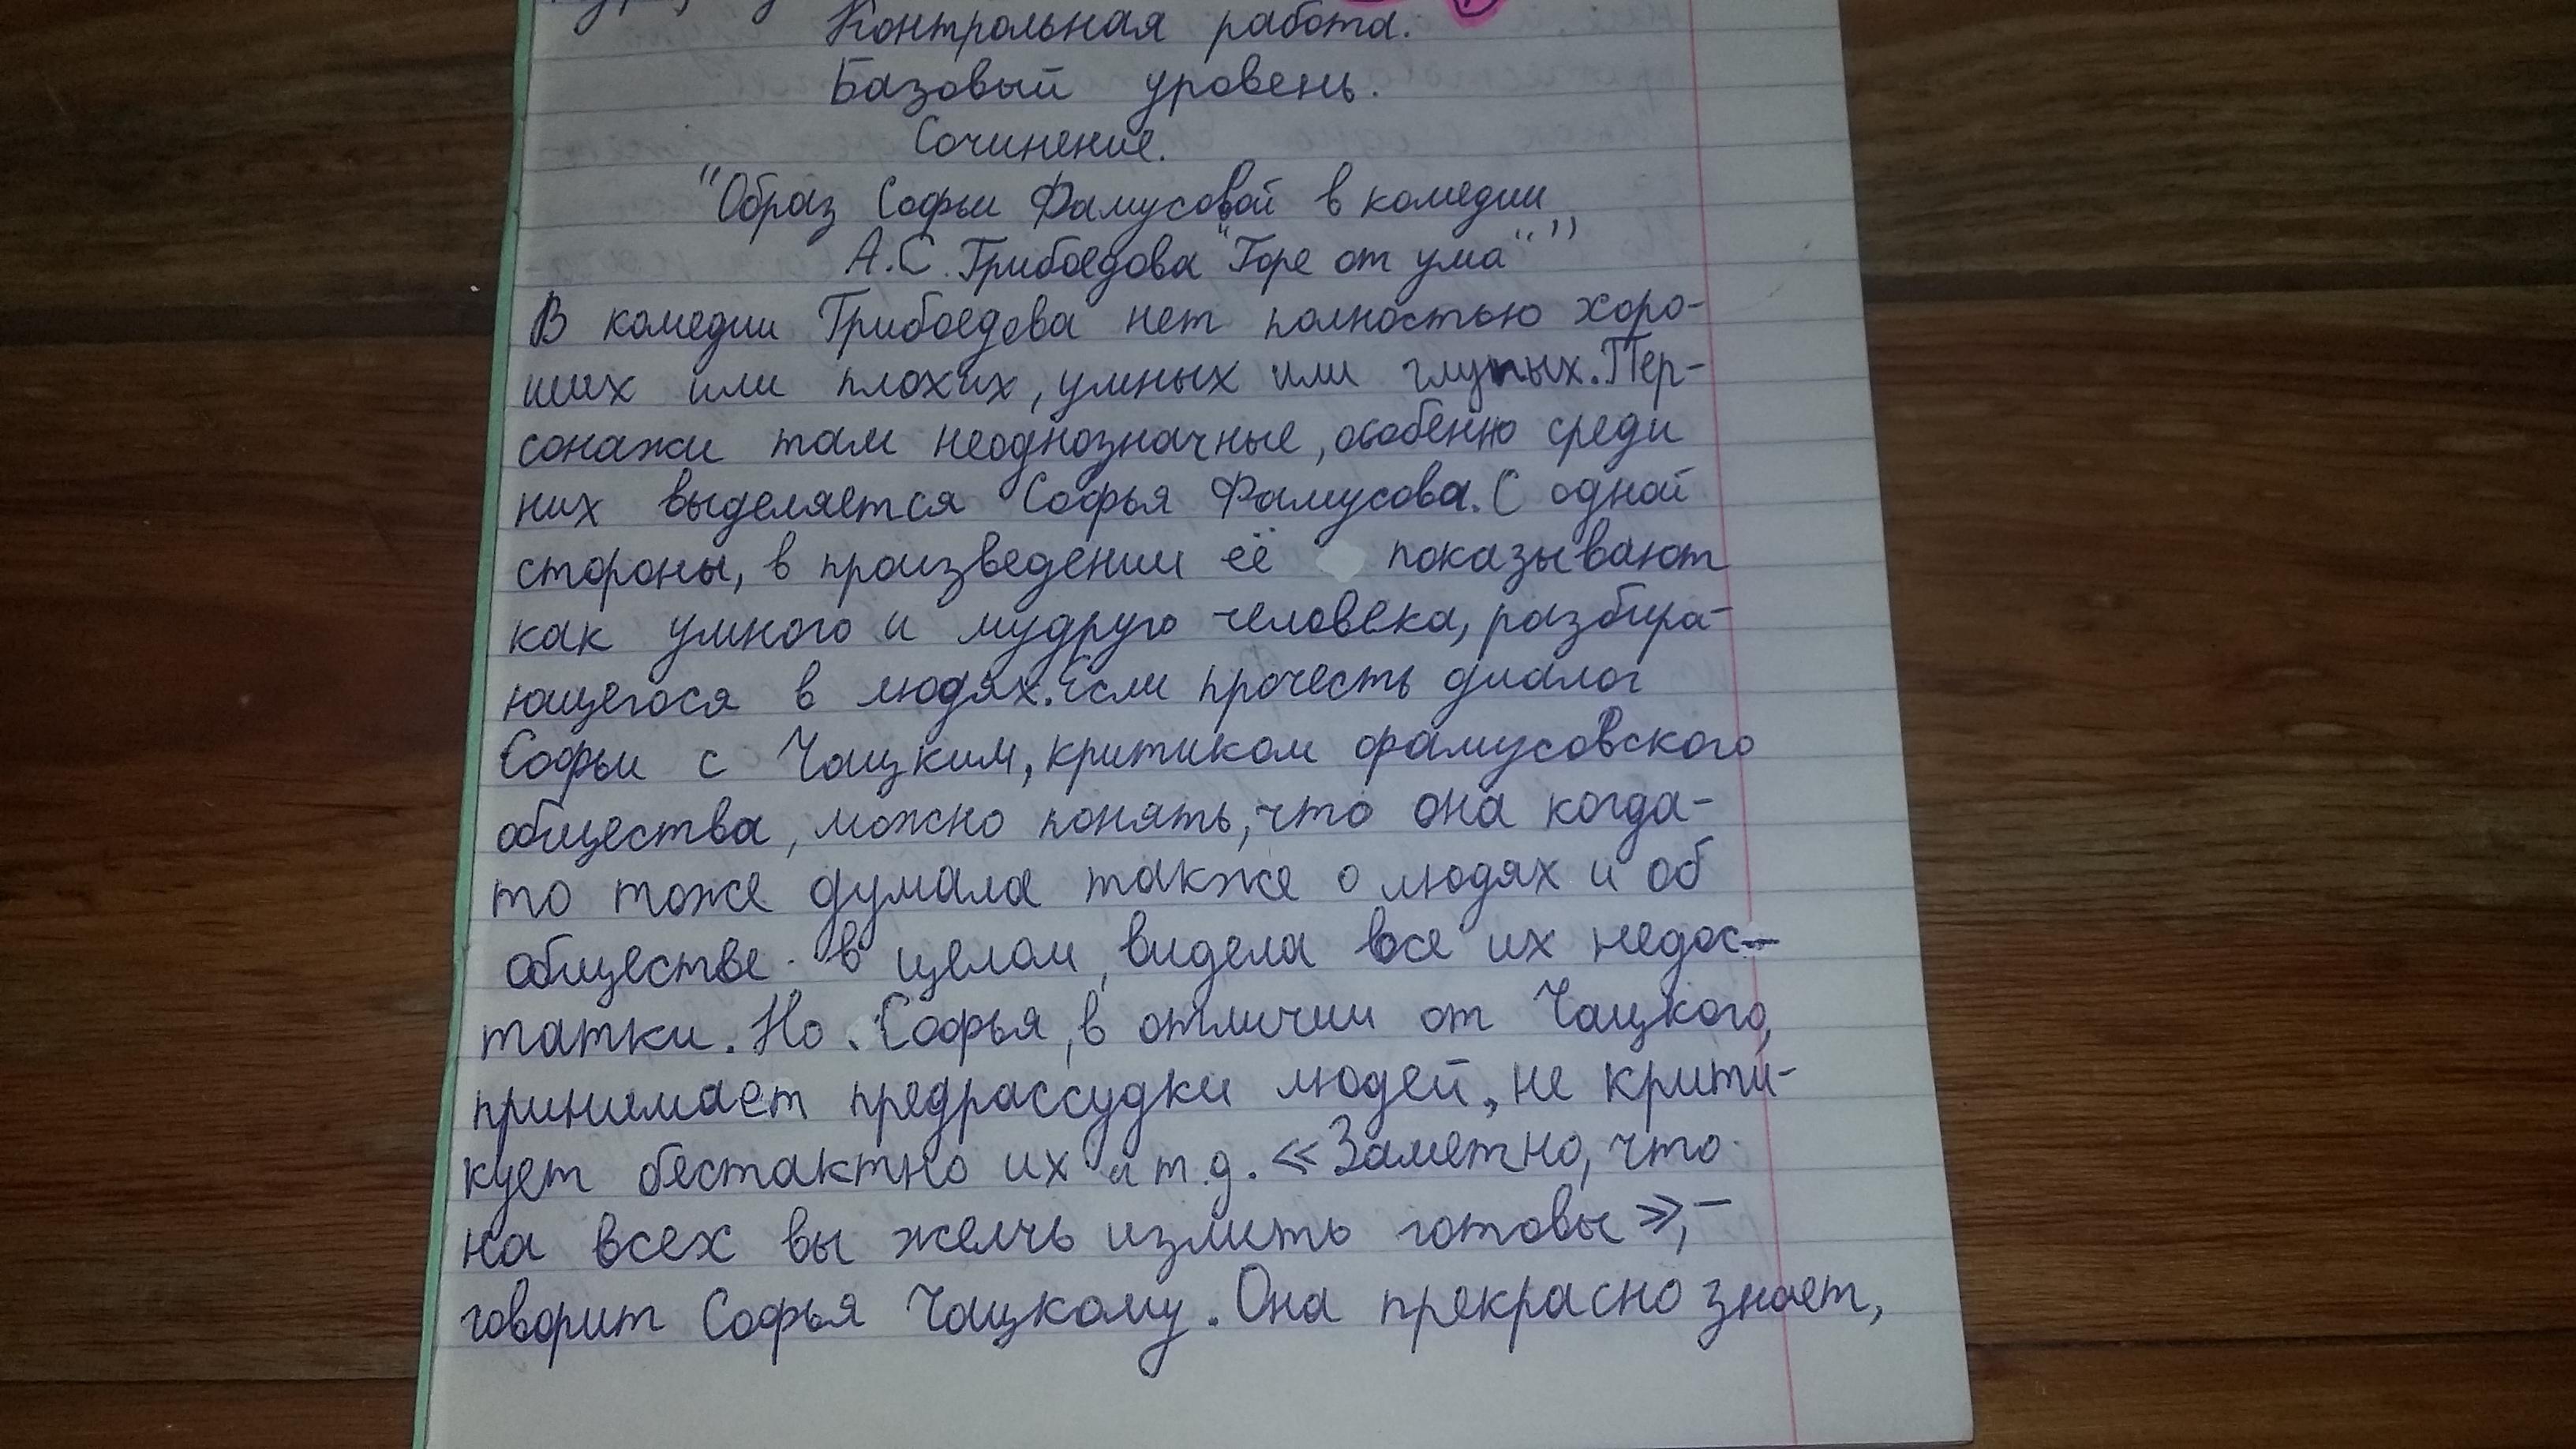 Контрольная работа.
Базовый уровень.
Сочинение.
"Образ Софьи Фамусовой в комедии
А.С. Грибоедова "Горе от ума""
В комедии Грибоедова нет полностью хоро-
ших или плохих, умных или глупых. Пер-
сонажи там неоднозначные, особенно среди
них выделяется Софья Фамусова. С одной
стороны, в произведении её показывают
как умного и мудрого человека, разбира-
ющегося в людях. Если прочесть диалог
Софьи с Чацким, критиком фамусовского
общества, можно понять, что она когда-
то тоже думала также о людях и об
обществе в целом, видела все их недос-
татки. Но Софья, в отличии от Чацкого,
принимает предрассудки людей, не крити-
кует бестактно их и т.д. «Заметно, что
на всех вы желчь излить готовы», -
говорит Софья Чацкому. Она прекрасно знает,